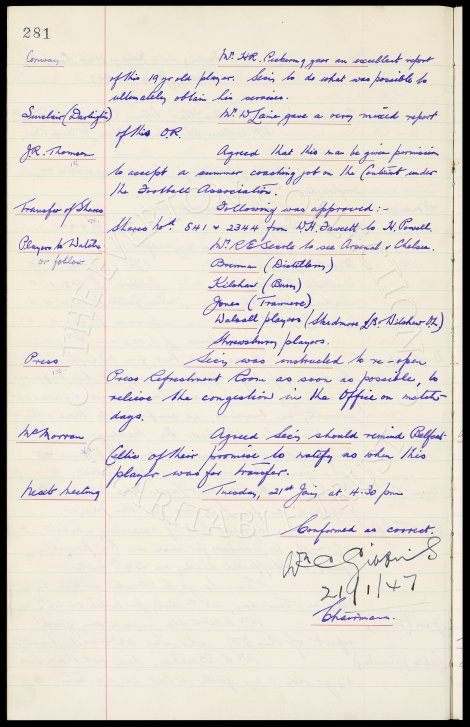 281
Conway Mr. H.R. Pickering gave an excellent report
of this 19 yr old player. Secy to do what was possible to
ultimately obtain his services.
Sinclair (Darlington) Mr. D Lane gave a very mixed report
of this O.R.
J.R. Thomson Agreed that this man be given permission
to accept a summer coaching job on the Continent under
the Football Association.
Transfer of Shares Following was approved :-
Shares Nos. 541 & 2344 from W.H. Fawcett to H. Powell.
Players to Watch Mr. R.E. Searle to see Arsenal v Chelsea.
or follow Brennan (Distillery)
Kilshaw (Bury)
Jones (Tranmere)
Walsall players (Skidmore L/B Dilshaw O/L)
Shrewsbury players.
Press Secy was instructed to re-open
Press Refreshment Room as soon as possible, to
relieve the congestion in the Office on match-
days.
McMorran Agreed Secy should remind Belfast
Celtic of their promise to notify us when this
player was for transfer.
Next meeting Tuesday, 21st Jany at 4.30 pm
Confirmed as correct.
21/1/47
Chairman.
THE EVERTON COLLECTION
CHARITABLE TRUST